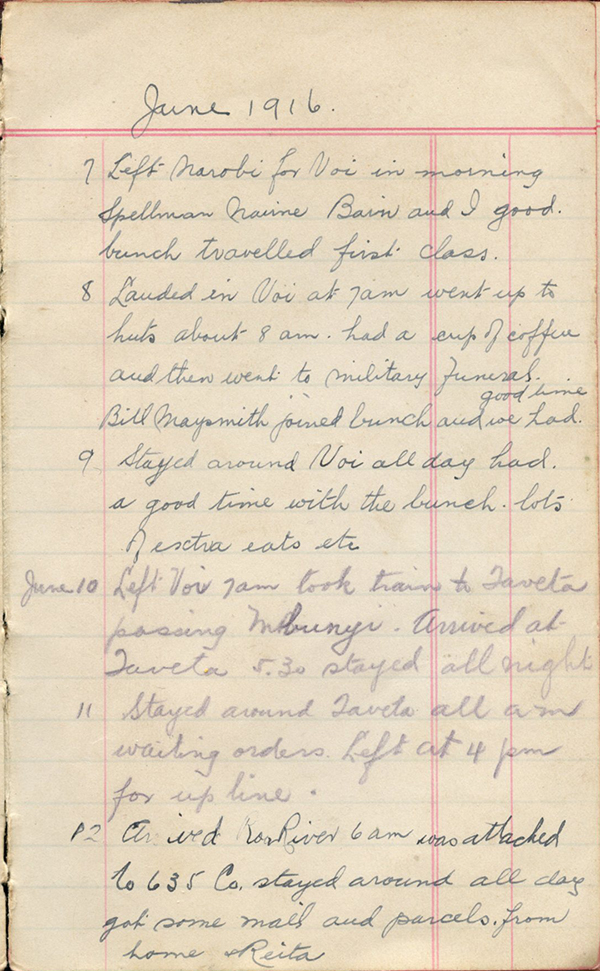 June 1916.
7 Left Narobi for Voi in morning
Spellman Nairne Bain and I good.
bunch travelled first class.
8 Landed in Voi at 7am went up to
huts about 8 am. had a cup of coffee
and then went to military funeral.
good time
Bill Naysmith joined bunch and we had.
9 Stayed around Voi all day had.
a good time with the bunch. lots
of extra eats etc
June 10 Left Voi 7am took train to Taveta
passing Mbunyi. Arrived at
Taveta 5.30 stayed all night
11 Stayed around Taveta all am
waiting orders. Left at 4 pm
for up line.
12 Arrived River 6 am was attached
to 635 Co. stayed around all day
got some mail and parcels. from
home & Reita